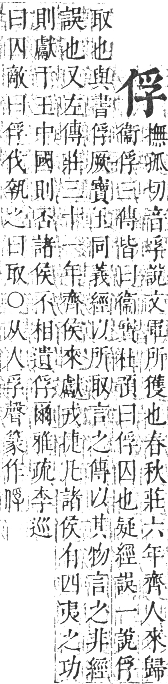 俘
撫孤切音孚說文軍所獲也春秋莊六年齊人來歸
衞俘三傳皆曰衞寶杜預曰俘囚也疑經誤一說俘
取也與書俘厥寶玉同義經以所取言之傳以其物言之非經
誤也又左傳莊三十一年齊侯來獻戎捷凡諸侯有四夷之功
則獻于王中國則否諸侯不相遺俘爾雅疏李巡
曰囚敵曰俘伐執之曰取○从人孚聲篆作俘